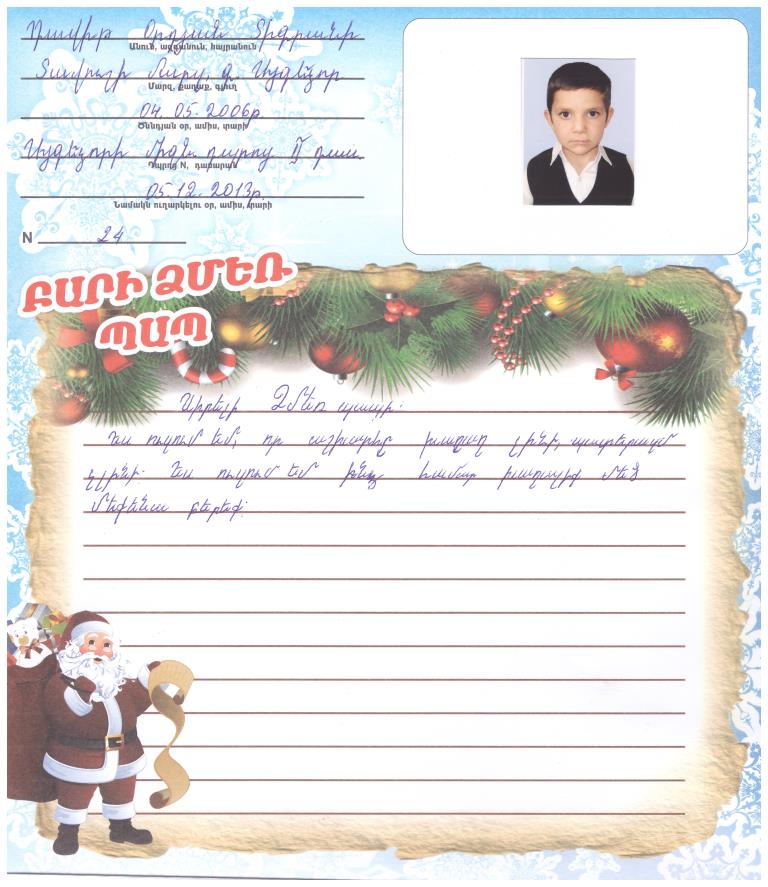 Դավիթ Օրդյան Տիգրանի
Անուն, ազգանուն, հայրանուն
Տավուշի մարզ, գ. Այգեձոր
Մարզ, քաղաք, գյուղ
04. 05. 2006թ.
Ծննդյան օր, ամիս, տարի
Այգեձորի միջն. դպրոց դաս.
Դպրոց N, դասարան
05.12.2013թ.
Նամակն ուղարկելու օր, ամիս, տարի
N 24
ԲԱՐԻ ՁՄԵՌ
ՊԱՊ
Սիրելի Ձմեռ պապի:
Ես ուզում եմ, որ աշխարհը խաղաղ լինի, պատերազմ
չլինի: Ես ուզում եմ ինձ համար խաղալիք մեծ
մեքենա բերեք: